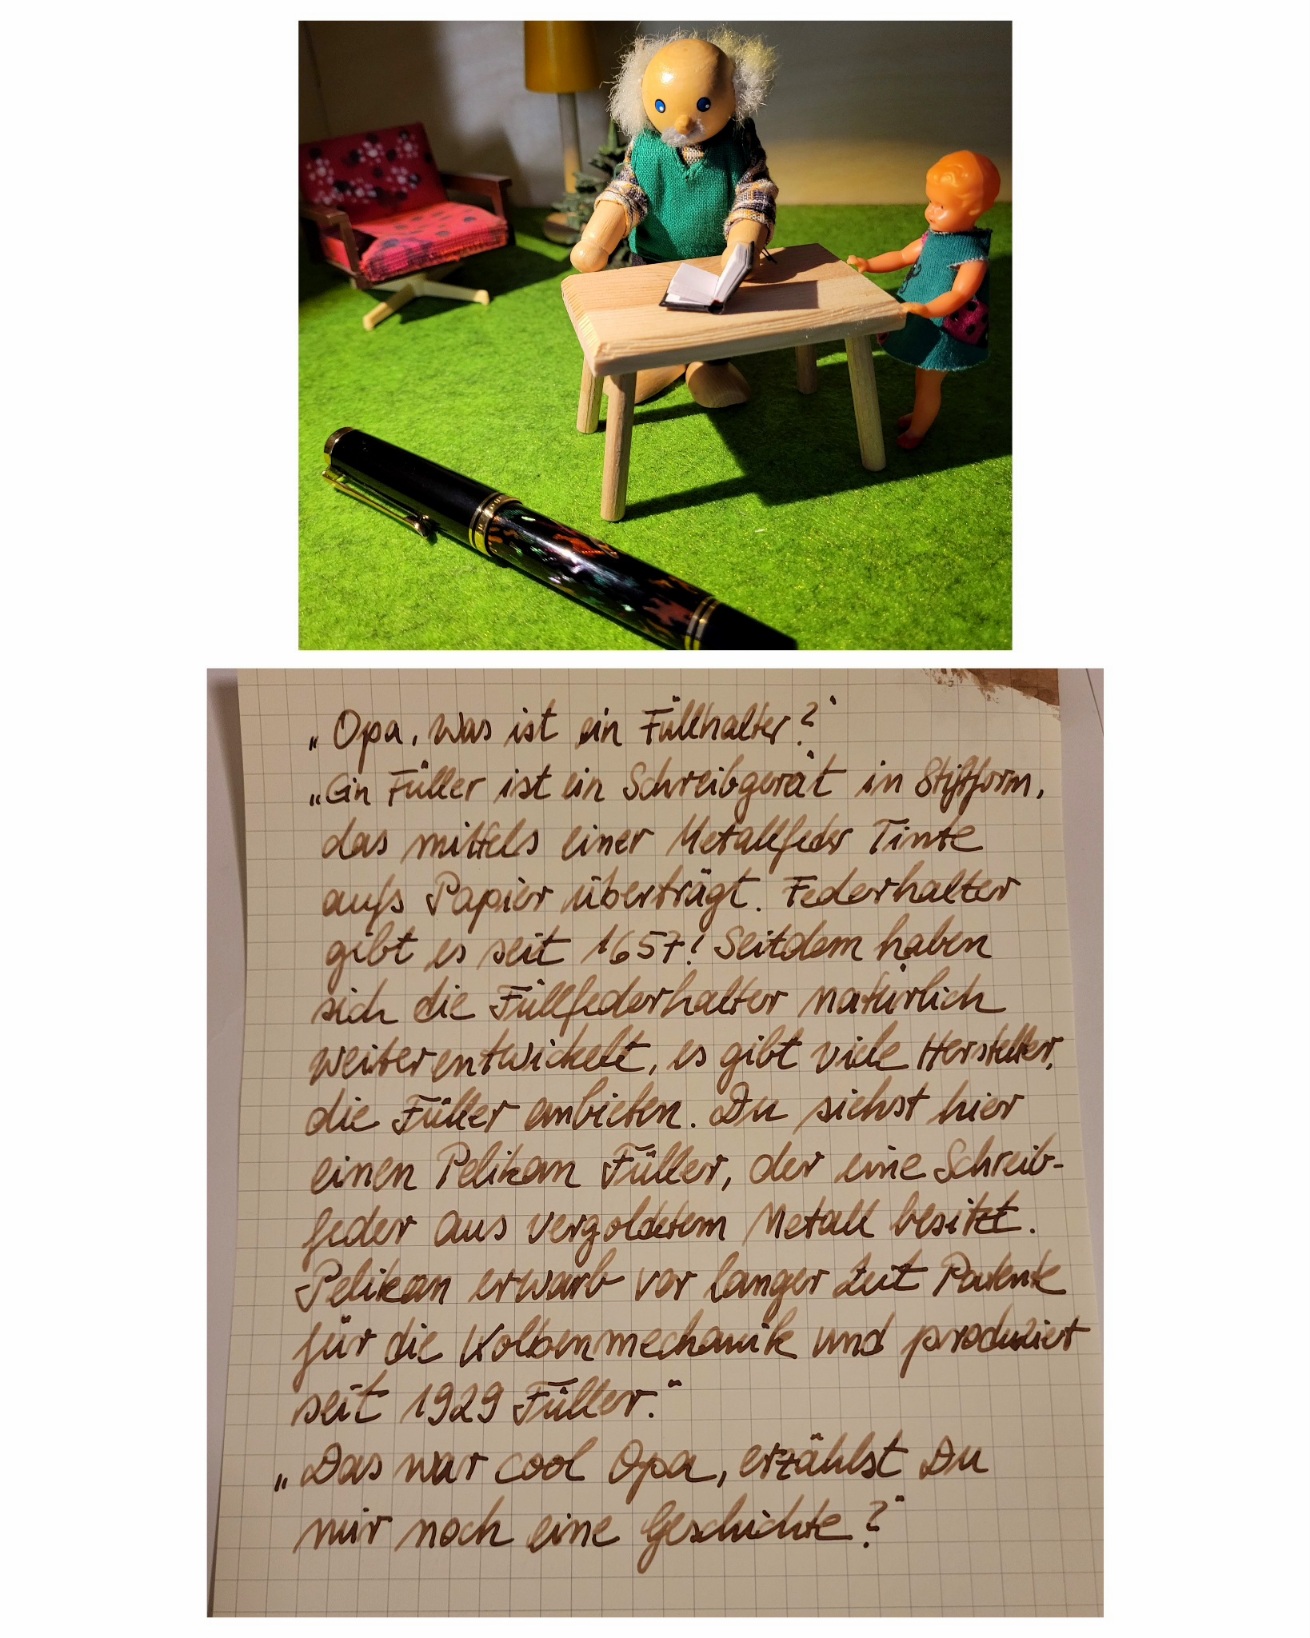 „Opa, was ist ein Füllhalter?"
„Ein Füller ist ein Schreibgerät in Stiftform,
das mittels einer Metallfeder Tinte
aufs Papier überträgt. Federhalter
gibt es seit 1657! Seitdem haben
sich die Füllfederhalter natürlich
weiterentwickelt, es gibt viele Hersteller,
die Füller anbieten. Du siehst hier
einen Pelikan Füller, der eine Schreib-
feder aus vergoldetem Metall besitzt.
Pelikan erwarb vor langer Zeit Patente
für die Kolbenmechanik und produziert
seit 1929 Füller."
„Das war cool Opa, erzählst Du
mir noch eine Geschichte?"